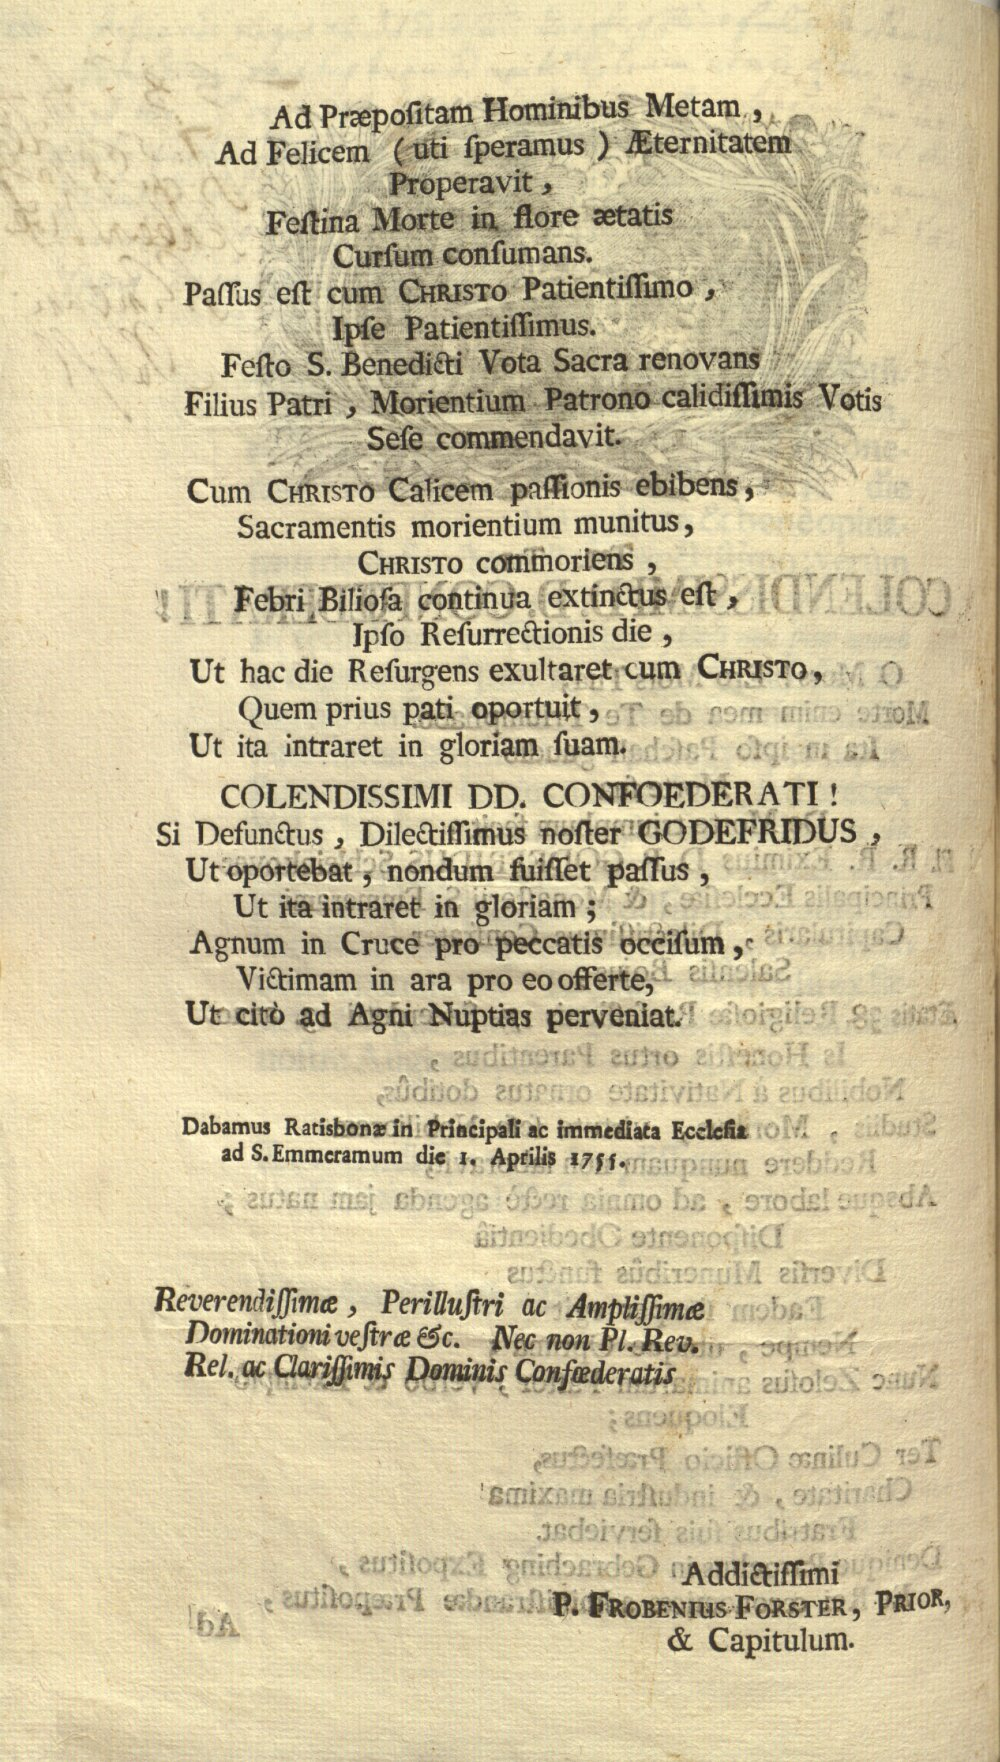 Ad Præpoſitam Hominibus Metam,
Ad Felicem (uti ſperamus) Æternitatem
Properavit,
Feſtina Morte in flore ætatis
Curſum conſumans.
Paſſus eſt cum CHRISTO Patientiſſimo,
Ipſe Patientiſſimus.
Feſto S. Benedicti Vota Sacra renovans
Filius Patri, Morientium Patrono calidiſſimis Votis
Seſe commendavit.
Cum CHRISTO Calicem paſſionis ebibens,
Sacramentis morientium munitus,
CHRISTO commoriens,
Febri Bilioſa continua extinctus eſt,
Ipſo Reſurrectionis die,
Ut hac die Reſurgens exultaret cum CHRISTO,
Quem prius pati oportuit,
Ut ita intraret in gloriam ſuam.
COLENDISSIMI DD. CONFOEDERATI!
Si Defunctus, Dilectiſſimus noſter GODEFRIDUS,
Ut oportebat, nondum fuiſſet paſſus,
Ut ita intraret in gloriam;
Agnum in Cruce pro peccatis occiſum,
Victimam in ara pro eo offerte,
Ut citò ad Agni Nuptias perveniat.
Dabamus Ratisbonæ in Principali ac immediata Eccleſia
ad S. Emmeramum die 1. Aprilis 1755.
Reverendiſſimæ, Perilluſtri ac Ampliſſimæ
Dominationi veſtræ &c. Nec non Pl. Rev.
Rel. ac Clariſſimis Dominis Confœderatis
Addictiſſimi
P. FROBENIUS FORSTER, PRIOR,
& Capitulum.